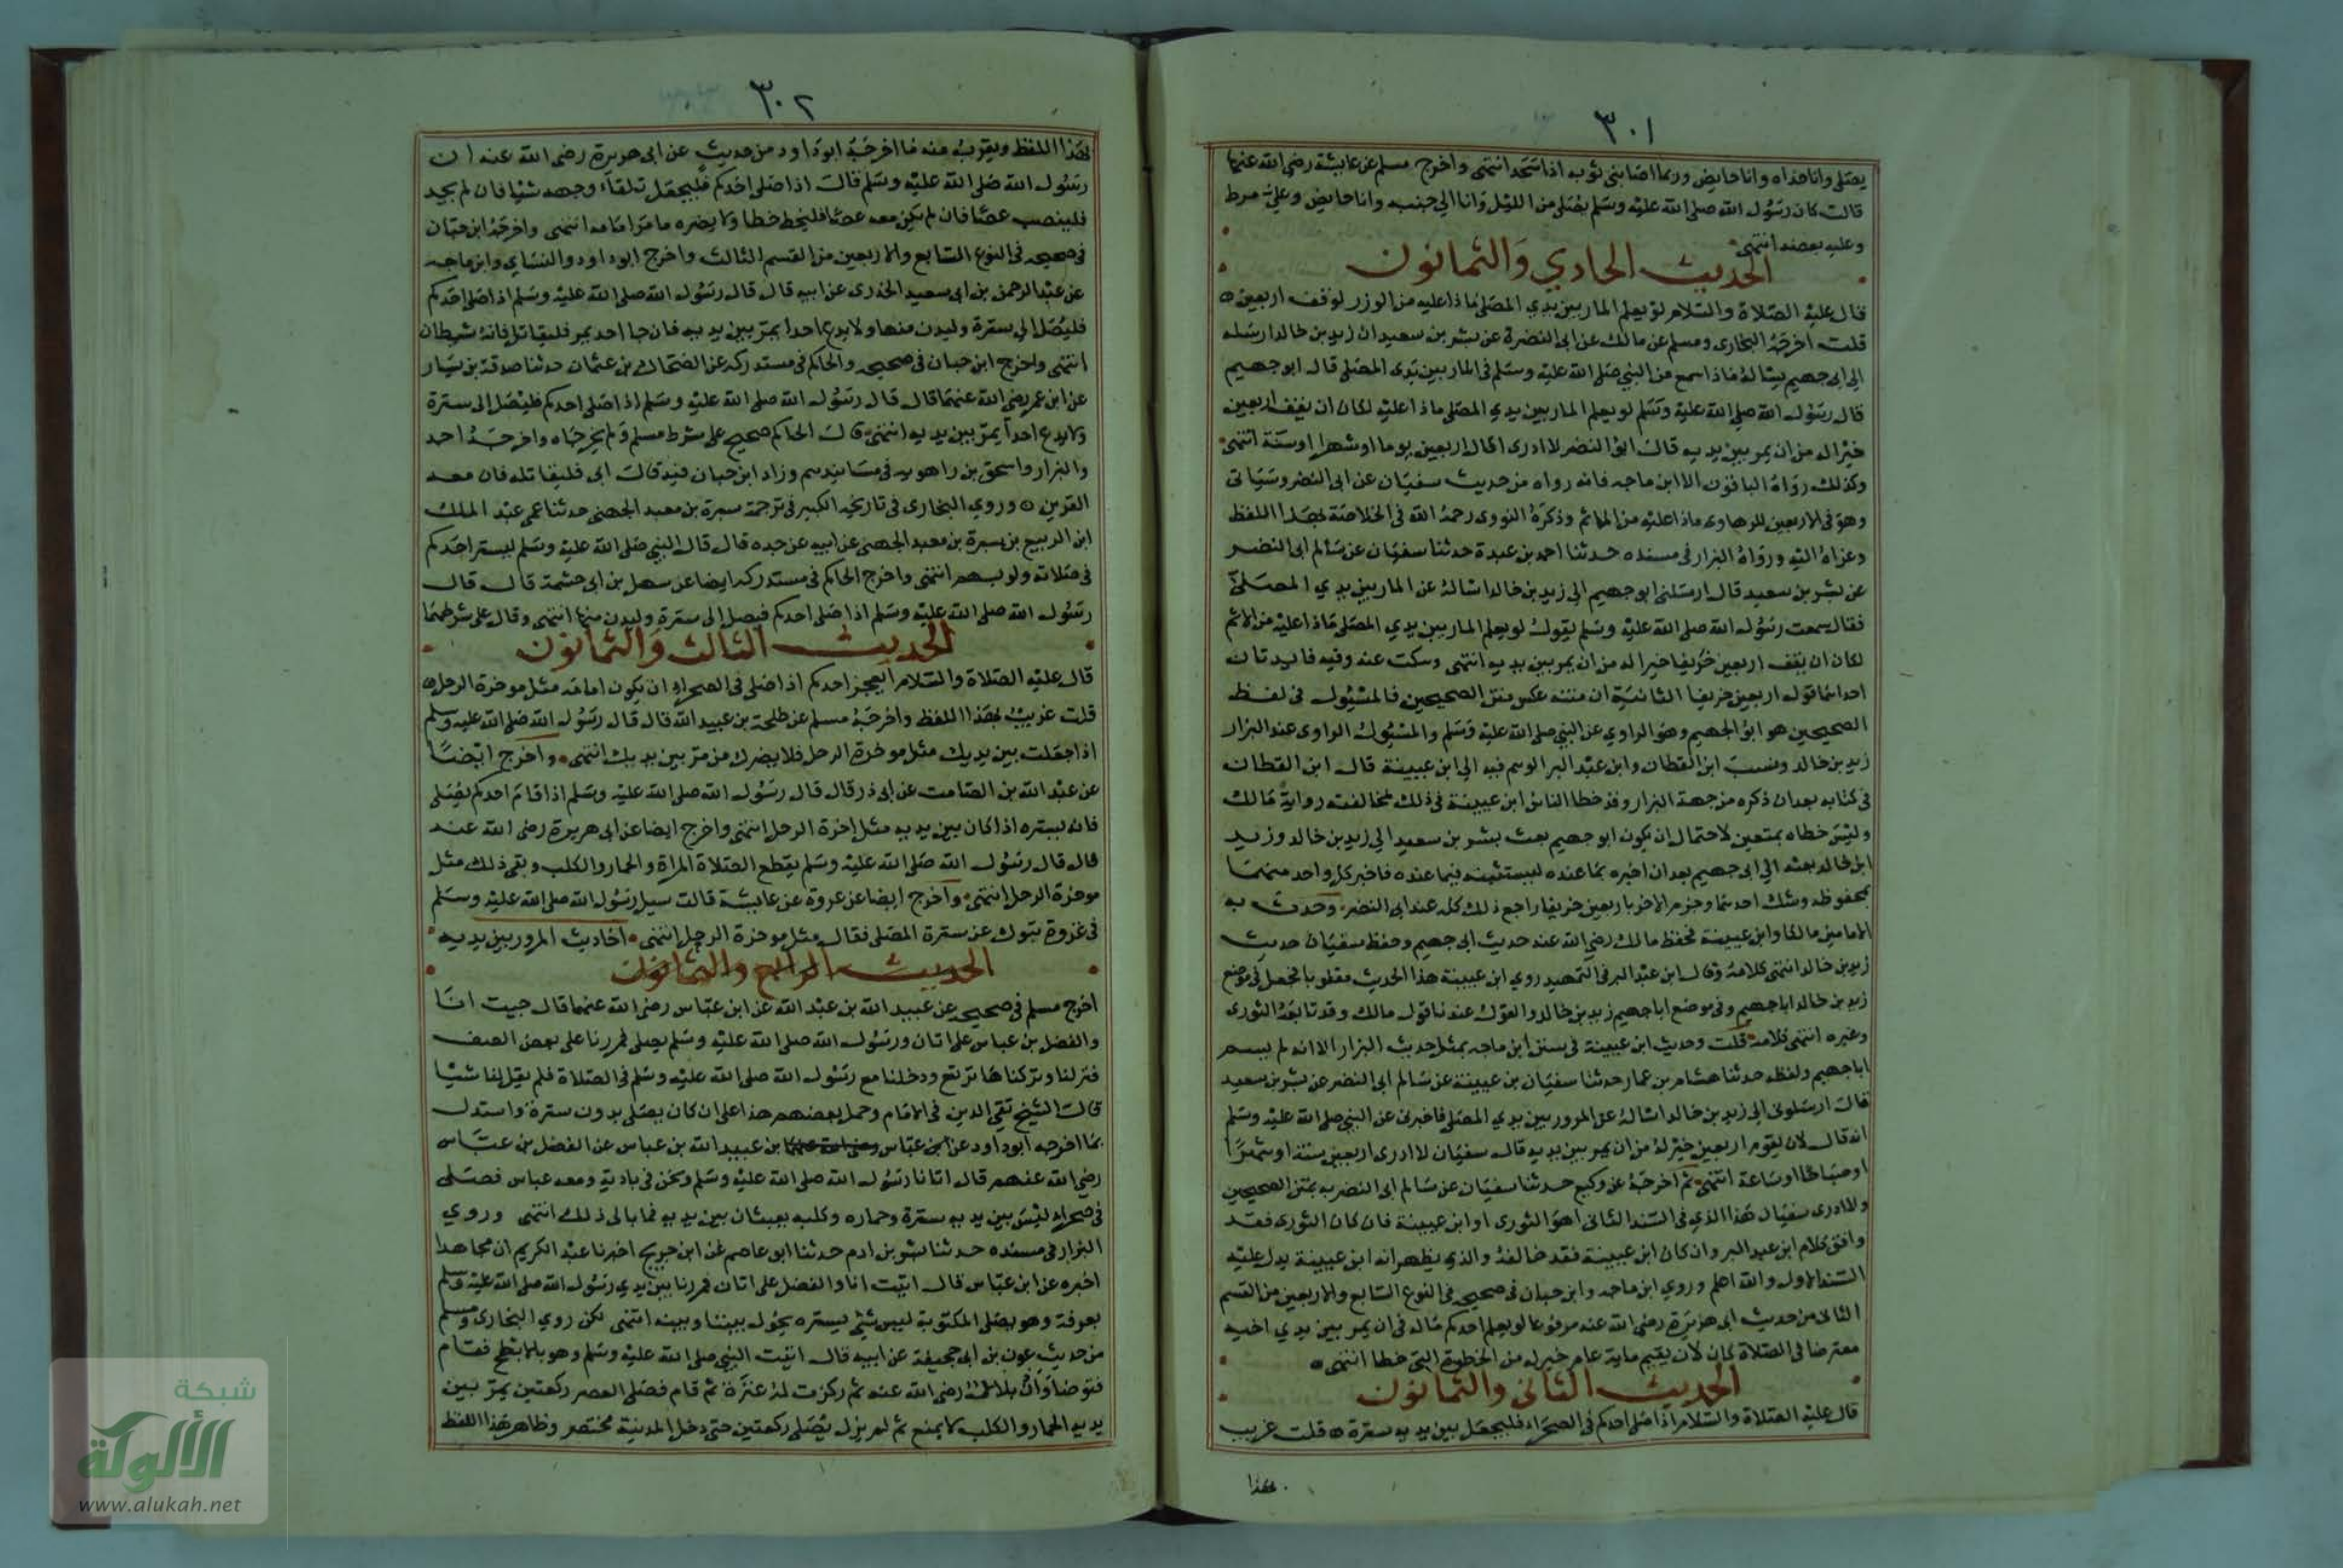 ٣٠١
يصلى وانا حذاه وانا حايض وربما اصابنى ثوبه اذا سجد انتهى واخرج مسلم عن عايشة رضى الله عنها
قالت كان رسول الله صلى الله عليه وسلم يصلى من الليل وانا الي جنبه وانا حايض وعلىّ مرط
وعليه بعضه انتهى
الحديث الحادي والثمانون
قال عليه الصلاة والسلام لو يعلم المار بين يدي المصلى ماذا عليه من الوزر لوقف اربعين
قلت اخرجه البخارى ومسلم عن مالك عن ابى النضرة عن بشر بن سعيد ان زيد بن خالد ارسله
الي ابى جهيم يساله ماذا سمع من النبي صلى الله عليه وسلم فى المار بين يدى المصلى قال ابو جهيم
قال رسول الله صلى الله عليه وسلم لو يعلم المار بين يدي المصلى ماذا عليه لكان ان يقف اربعين
خيرا له من ان يمر بين يديه قال ابو النضر لا ادرى اقال اربعين يوما او شهرا او سنة انتهى
وكذلك رواه الباقون الا ابن ماجه فانه رواه من حديث سفيان عن ابى النضر وسياتى
وهو فى الاربعين للرهاوى ماذا عليه من الماثم وذكره النووى رحمه الله فى الخلاصة بهذا اللفظ
وعزاه اليه ورواه البزار فى مسنده حدثنا احمد بن عبدة حدثنا سفيان عن سالم ابى النضر
عن بشر بن سعيد قال ارسلنى ابو جهيم الى زيد بن خالد اساله عن المار بين يدي المصلىّ
فقال سمعت رسول الله صلى الله عليه وسلم يقول لو يعلم المار بين يدي المصلى ماذا عليه من الاثم
لكان ان يقف اربعين خريفا خيرا له من ان يمر بين يديه انتهى وسكت عنه وفيه فايدتان
احداهما قوله اربعين خريفا الثانية ان متنه عكس متن الصحيحين فالمسئول فى لفظ
الصحيحين هو ابو الجهيم وهو الراوي عن النبي صلى الله عليه وسلم والمسئول الراوى عند البزار
زيد بن خالد ونسب ابن القطان وابن عبد البر الوهم فيه الي ابن عيينة قال ابن القطان
فى كتابه بعد ان ذكره من جهة البزار وقد خطا الناس ابن عيينة فى ذلك لمخالفته رواية مالك
وليس خطاه بمتعين لاحتمال ان يكون ابو جهيم بعث بشر بن سعيد الي زيد بن خالد وزيد
ابن خالد بعثه الي ابى جهيم بعد ان اخبره بما عنده ليستثبته فيما عنده فاخبر كل واحد منهما
بمحفوظه وشك احدهما وجزم الاخر باربعين خريفا واجتمع ذلك كله عند ابى النضر وحدث به
الامامين مالكا وابن عيينة فحفظ مالك رضى الله عنه حديث ابى جهيم وحفظ سفيان حديث
زيد بن خالد انتهى كلامه وقال ابن عبد البر فى التمهيد روي ابن عيينة هذا الحديث مقلوبا فجعل فى موضع
زيد بن خالد ابا جهيم وفى موضع ابا جهيم زيد بن خالد والقول عندنا قول مالك وقد تابعه الثورى
وغيره انتهى كلامه قلت وحديث ابن عيينة فى سنن ابن ماجه بمثل حديث البزار الا انه لم يسم
ابا جهيم ولفظه حدثنا هشام بن عمار حدثنا سفيان بن عيينة عن سالم ابى النضر عن بشر بن سعيد
قال ارسلونى الى زيد بن خالد اساله عن المرور بين يدي المصلى فاخبرنى عن النبي صلى الله عليه وسلم
انه قال لان يقوم اربعين خير له من ان يمر بين يديه قال سفيان لا ادرى اربعين سنة او شهرا
او صباحا او ساعة انتهى ثم اخرجه عن وكيع حدثنا سفيان عن سالم ابى النضر به بمتن الصحيحين
ولا ادرى سفيان هذا الذي فى السند الثانى اهو الثورى او ابن عيينة فان كان الثورى فقد
وافق كلام ابن عبد البر وان كان ابن عيينة فقد خالفه والذي يظهر انه ابن عيينة يدل عليه
السند الاول والله اعلم وروي ابن ماجه وابن حبان فى صحيحه فى النوع السابع والاربعين من القسم
الثانى من حديث ابى هريرة رضى الله عنه مرفوعا لو يعلم احدكم ماله فى ان يمر بين يدي اخيه
معترضا فى الصلاة كان لان يقيم ماية عام خير له من الخطوة التى خطا انتهى
الحديث الثانى والثمانون
قال عليه الصلاة والسلام اذا صلى احدكم فى الصحراء فليجعل بين يديه سترة قلت غريب
بهذا
٣٠٢
بهذا اللفظ ويقرب منه ما اخرجه ابو داود من حديث عن ابى هريرة رضى الله عنه ان
رسول الله صلى الله عليه وسلم قال اذا صلى احدكم فليجعل تلقاء وجهه شيا فان لم يجد
فلينصب عصًا فان لم يكن معه عصًا فليخط خطا ولا يضره ما مر امامه انتهى واخرجه ابن حبان
فى صحيحه فى النوع السابع والاربعين من القسم الثالث واخرج ابو داود والنساي وابن ماجه
عن عبد الرحمن بن ابى سعيد الخدرى عن ابيه قال قال رسول الله صلى الله عليه وسلم اذا صلى احدكم
فليصل الي سترة وليدن منها ولا يدع احدا يمر بين يديه فان جا احد يمر فليقاتل فانه شيطان
انتهى واخرج ابن حبان فى صحيحه والحاكم فى مستدركه عن الضحاك بن عثمان حدثنا صدقة بن يسار
عن ابن عمر رضى الله عنهما قال قال رسول الله صلى الله عليه وسلم اذا صلى احدكم فليصل الى سترة
ولا يدع احدا يمر بين يديه انتهى قال الحاكم صحيح على شرط مسلم ولم يخرجاه واخرجه احمد
والبزار واسحق بن راهويه فى مسانيدهم وزاد ابن حبان فيه قال ابى فليقاتله فان معه
القرين وروي البخارى فى تاريخه الكبير فى ترجمة سبرة بن معبد الجهنى حدثنا عمى عبد الملك
ابن الربيع بن سبرة بن معبد الجهنى عن ابيه عن جده قال قال النبي صلى الله عليه وسلم ليستر احدكم
فى صلاته ولو بسهم انتهى واخرج الحاكم فى مستدركه ايضا عن سهل بن ابى حثمة قال قال
رسول الله صلى الله عليه وسلم اذا صلى احدكم فيصل الى سترة وليدن منها انتهى وقال على شرطهما
الحديث الثالث والثمانون
قال عليه الصلاة والسلام ايعجز احدكم اذا صلى فى الصحراء ان يكون امامه مثل موخرة الرحل
قلت غريب بهذا اللفظ واخرجه مسلم عن طلحة بن عبيد الله قال قال رسول الله صلى الله عليه وسلم
اذا جعلت بين يديك مثل موخرة الرحل فلا يضرك من مر بين يديك انتهى واخرج ايضا
عن عبد الله بن الصامت عن ابى ذر قال قال رسول الله صلى الله عليه وسلم اذا قام احدكم يصلى
فانه يستره اذا كان بين يديه مثل اخرة الرحل انتهى واخرج ايضا عن ابى هريرة رضى الله عنه
قال قال رسول الله صلى الله عليه وسلم يقطع الصلاة المراة والحمار والكلب ويقى ذلك مثل
موخرة الرحل انتهى واخرج ايضا عن عروة عن عايشة قالت سيل رسول الله صلى الله عليه وسلم
فى غزوة تبوك عن سترة المصلى فقال مثل موخرة الرحل انتهى احاديث المرور بين يديه
الحديث الرابع والثمانون
اخرج مسلم فى صحيحه عن عبيد الله بن عبد الله عن ابن عباس رضى الله عنهما قال جيت انا
والفضل بن عباس على اتان ورسول الله صلى الله عليه وسلم يصلى فمررنا على بعض الصف
فنزلنا وتركناها ترتع ودخلنا مع رسول الله صلى الله عليه وسلم فى الصلاة فلم يقل لنا شيا
قال الشيخ تقي الدين فى الامام وحمل بعضهم هذا على ان كان يصلى بدون سترة واستدل
بما اخرجه ابو داود عن ابن عباس بن عبيد الله بن عباس عن الفضل بن عباس
رضى الله عنهم قال اتانا رسول الله صلى الله عليه وسلم ونحن فى بادية ومعه عباس فصلى
فى صحراء ليس بين يديه سترة وحماره وكلبه يعبثان بين يديه فما بالى ذلك انتهى وروي
البزار فى مسنده حدثنا بشر بن ادم حدثنا ابو عاصم عن ابن جريج اخبرنا عبد الكريم ان مجاهدا
اخبره عن ابن عباس قال اتيت انا والفضل على اتان فمررنا بين يدي رسول الله صلى الله عليه وسلم
بعرفة وهو يصلى المكتوبة ليس شئ يستره يحول بيننا وبينه انتهى لكن روي البخارى ومسلم
من حديث عون بن ابى جحيفة عن ابيه قال اتيت النبي صلى الله عليه وسلم وهو بالابطح فقام
فتوضا واذن بلال رضى الله عنه ثم ركزت له عنزة ثم قام فصلى العصر ركعتين يمر بين
يديه الحمار والكلب لا يمنع ثم لم يزل يصلى ركعتين حتى دخل المدينة مختصر وظاهر هذا اللفظ
شبكة
الألوكة
www.alukah.net